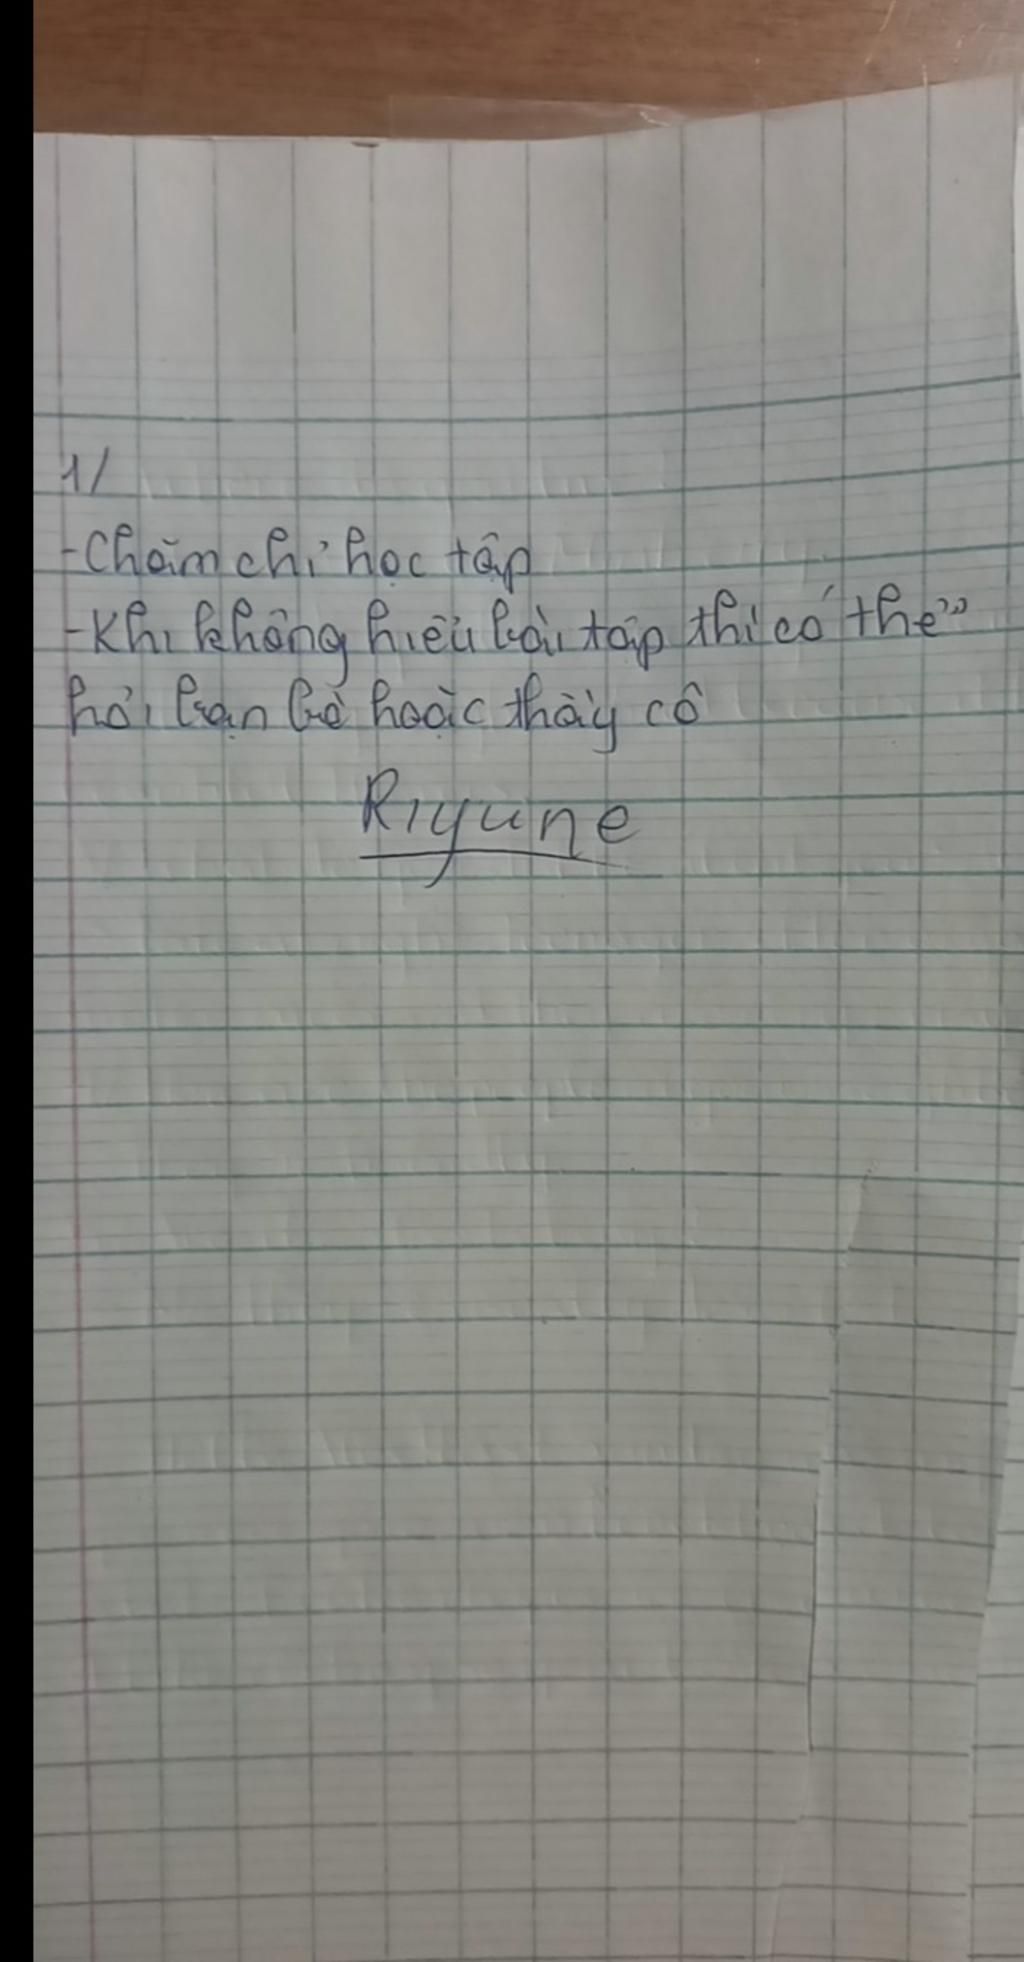 1/
-Chăm chỉ học tập
-Khi không hiểu bài tập thì có thể
hỏi bạn bè hoặc thầy cô
Riyune